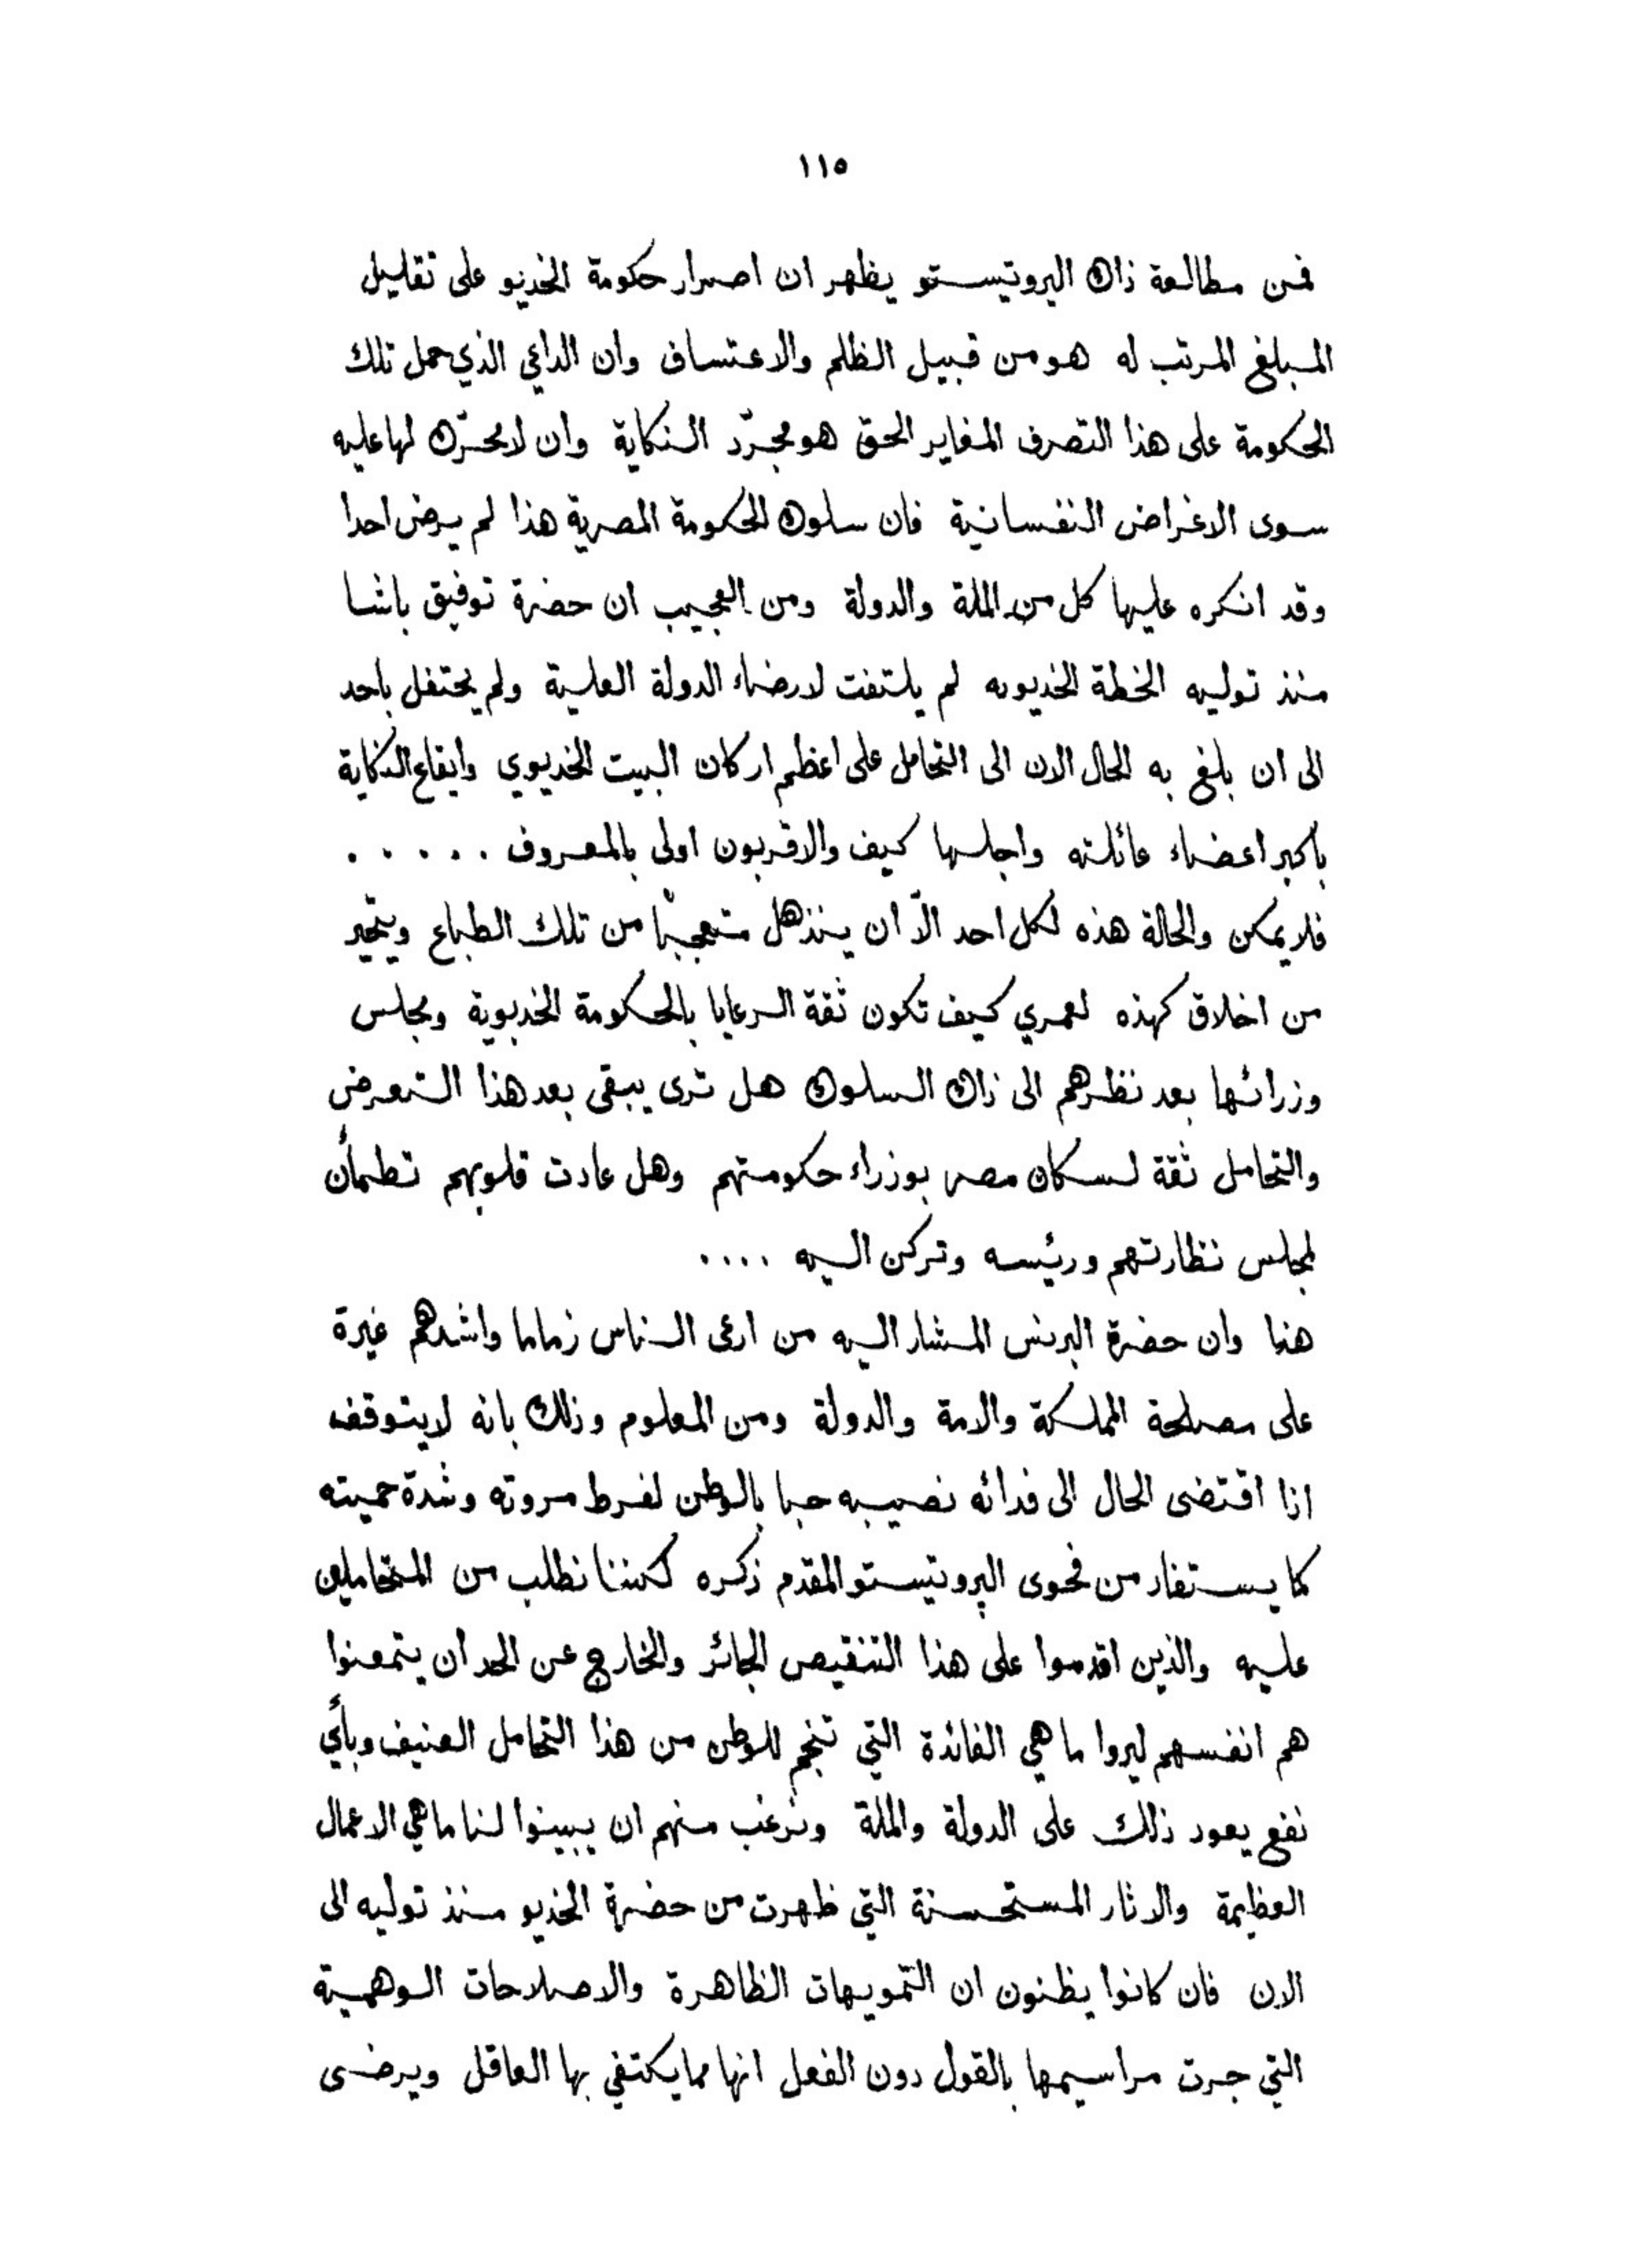 ١١٥
فمن مطالعة ذاك البروتيستو يظهر ان اصرار حكومة الخديو على تقليل
المبلغ المرتب له هو من قبيل الظلم والاعتساف وان الداعي الذي حمل تلك
الحكومة على هذا التصرف المغاير الحق هو مجرّد النكاية وان لا محرّك لها عليه
سوى الاغراض النفسانية فان سلوك الحكومة المصرية هذا لم يرض احدا
وقد انكره عليها كل من الملة والدولة ومن العجيب ان حضرة توفيق باشا
منذ توليه الخطة الخديويه لم يلتفت لارضاء الدولة العلية ولم يحتفل باحد
الى ان بلغ به الحال الان الى التحامل على اعظم اركان البيت الخديوي وايقاع النكاية
باكبر اعضاء عائلته واجلها كيف والاقربون اولى بالمعروف . . . . .
فلا يمكن والحالة هذه لكل احد الاّ ان ينذهل متعجبًا من تلك الطباع ويتحير
من اخلاق كهذه لعمري كيف تكون ثقة الرعايا بالحكومة الخديوية ومجلس
وزرائها بعد نظرهم الى ذاك السلوك هل ترى يبقى بعد هذا التعرض
والتحامل ثقة لسكان مصر بوزراء حكومتهم وهل عادت قلوبهم تطمأن
لمجلس نظارتهم ورئيسه وتركن اليه ....
هذا وان حضرة البرنس المشار اليه من ارعى الناس زماما واشدهم غيرة
على مصلحة المملكة والامة والدولة ومن المعلوم وذلك بانه لا يتوقف
اذا اقتضى الحال الى فدائه نصيبه حبا بالوطن لفرط مروته وشدة حميته
كما يستفاد من فحوى البروتيستو المقدم ذكره لكننا نطلب من المتحاملين
عليه والذين اقدموا على هذا التنقيص الجائر والخارج عن الحد أن يتمعنوا
هم انفسهم ليروا ما هي الفائدة التي تنجم للوطن من هذا التحامل العنيف وبأي
نفع يعود ذلك على الدولة والملة ونرغب منهم ان يبينوا لنا ما هي الاعمال
العظيمة والاثار المستحسنة التي ظهرت من حضرة الخديو منذ توليه الى
الان فان كانوا يظنون ان التمويهات الظاهرة والاصلاحات الوهمية
التي جرت مراسيمها بالقول دون الفعل انها مما يكتفي بها العاقل ويرضى